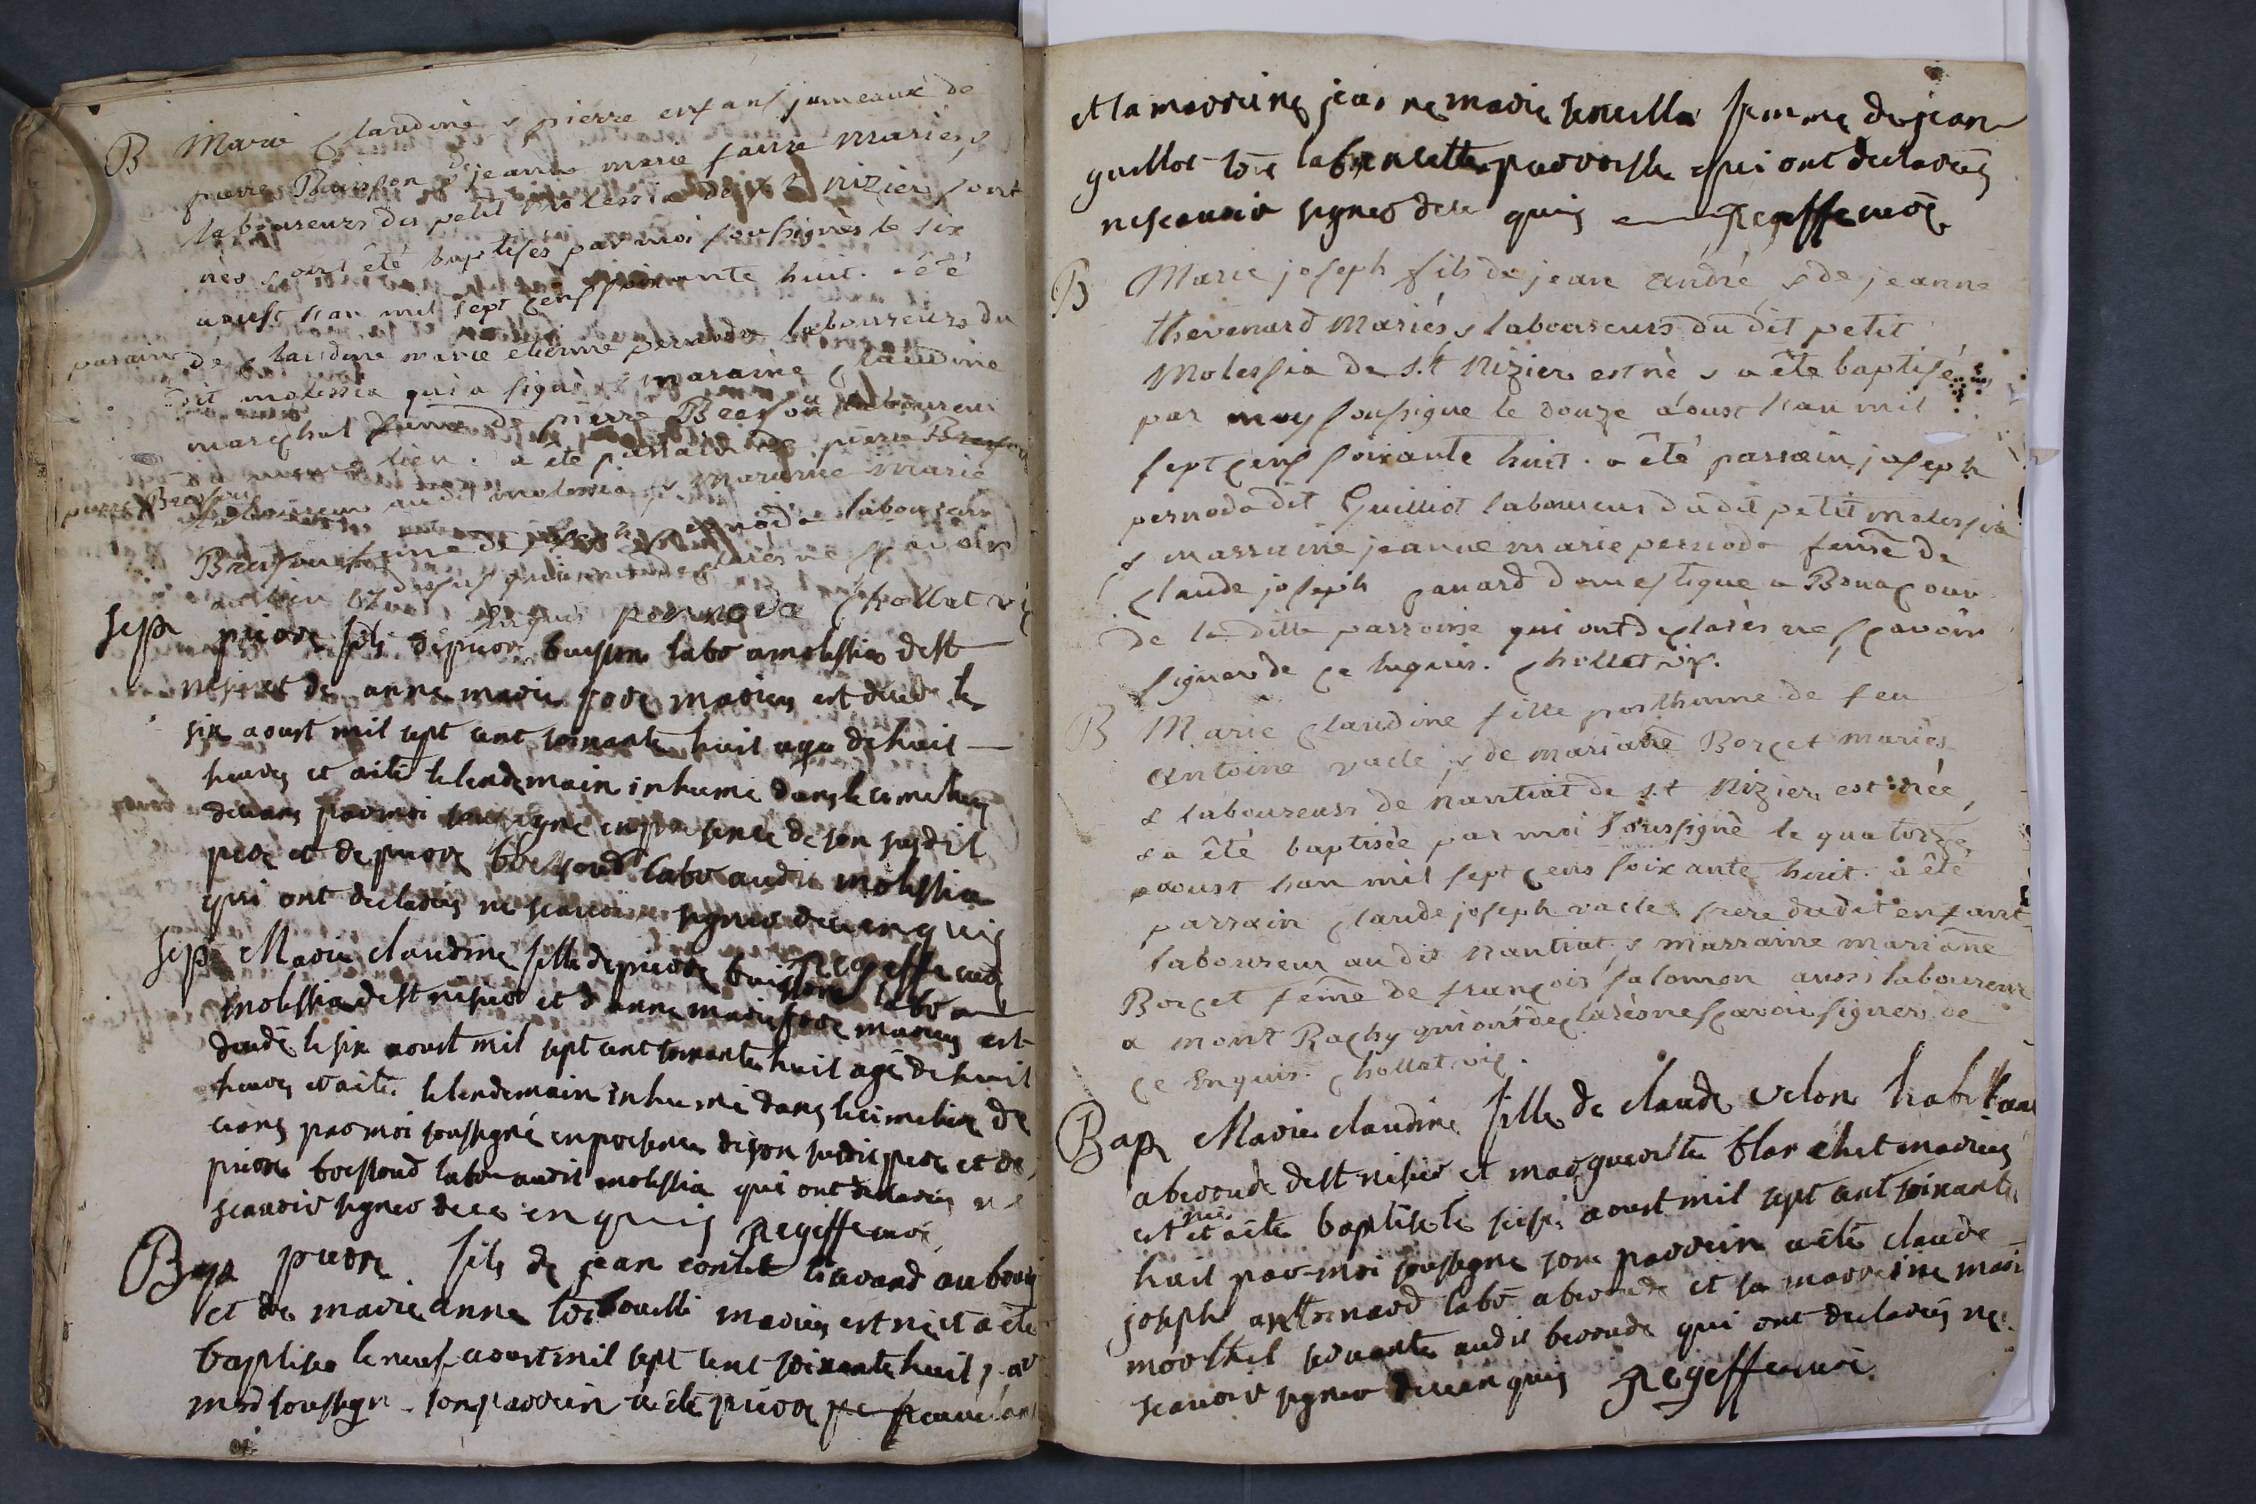 B Marie Claudine & pierre enfans jumeaux de
pierre Buisson & de jeanne marie faure mariés &
laboureurs du petit Molessia de st Nizier sont
nés & ont été baptisés par moi soussignés le six
aoust l'an mil sept cens soixante huit. a été
parain de Claudine marie etienne pernodo laboureurs du
dit molessia qui a signé & maraine Claudine
marechal feme de pierre Bresson laboureur
lieu. a été parrain de pierre
pierre Bressou laboureur au dit molessia & maraine marie
Bressou feme de joseph pernodo laboureur
au lieu dessus qui ont declarés ne scavoir
signer pernodo Chollat vic
sep pierre fils de pierre buisson labo a molessia de st
nisier et de anne marie fore mariés est decede le
six aoust mil sept cent soixante huit age de huit
heures et a ité le lendemain inhumé dans le cimetier
de ceans par moi soussigné en presence de son susdit
pere et de pierre bressoud labo audit molessia
qui ont declarés ne scavoir signer de ce enquis
Regeffe curé
sep Marie claudine fille de pierre buisson labo a
molessia de st nisier et d'anne marie fore mariés est
decedé le six aoust mil sept cent soixante huit agé de huit
heures et a ité le lendemain inhumé dans le cimetier de
ceans par moi soussigné en presence de son susdit pere et de
pierre bressoud labo audit molessia qui ont declarés ne
scavoir signer de ce enquis Regeffe curé
Bap pierre fils de jean contet tisserand au bourg
et de marie anne mariés est né et a été
baptisé le neuf aoust mil sept cent soixante huit par
moi soussigné son parrein a été pierre
et la marreine jeanne marie femme de jean
guillot tous la presente parroisse qui ont declarés
ne scavoir signer de ce quis Regeffe curé
B Marie joseph fils de jean André & de jeanne
thevenard Mariés & laboureurs du dit petit
Molessia de s.t Nizier est né & a été baptisé
par moy soussigné le douze aoust l'an mil
sept cens soixante huit. a été parrain joseph
pernodo dit Guilliot laboureur du dit petit molessia
& marraine jeanne marie pernodo feme de
Claude joseph panard domestique a Bonacour
de la ditte parroisse qui ont declarés ne scavoir
signer de ce enquis. Chollat vic.
B Marie Claudine fille posthume de feu
Antoine vacle & de mariane Borcet mariés
& laboureurs de nantiat de s.t Nizier est née,
& a été baptisée par moi soussigné le quatorze
aoust l'an mil sept cens soixante huit. a été
parrain Claude joseph vacle frere dudit enfant
laboureur au dit nantiat, & marraine mariane
Borcet feme de françois salomon aussi laboureur
a mont Rachy qui ont declarés ne scavoir signer de
ce Enquis. Chollat vic.
Bap Marie claudine fille de claude velon habitant
a beroude de st nisier et margueritte blanchet mariés
est née et a été baptisé le seise aoust mil sept cent soixante
huit par moi soussigné son parrein a été claude
joseph labo a beroude et sa marreine marie
servante audit beroude qui ont declarés ne
scavoir signer de ce enquis Regeffe curé